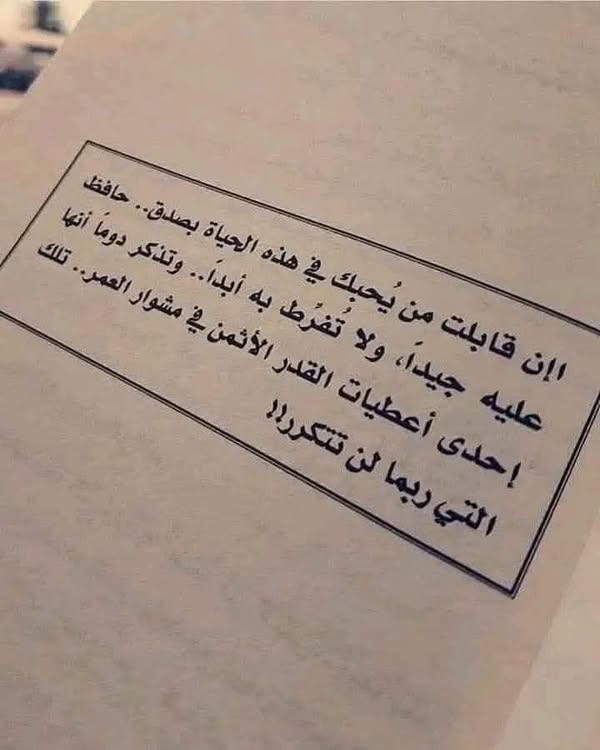 اإن قابلت من يُحبك في هذه الحياة بصدق.. حافظ
عليه جيداً، ولا تُفرُط به أبداً.. وتذكر دوماً أنها
إحدى أعطيات القدر الأثمن في مشوار العمر.. تلك
التي ربما لن تتكرر!!